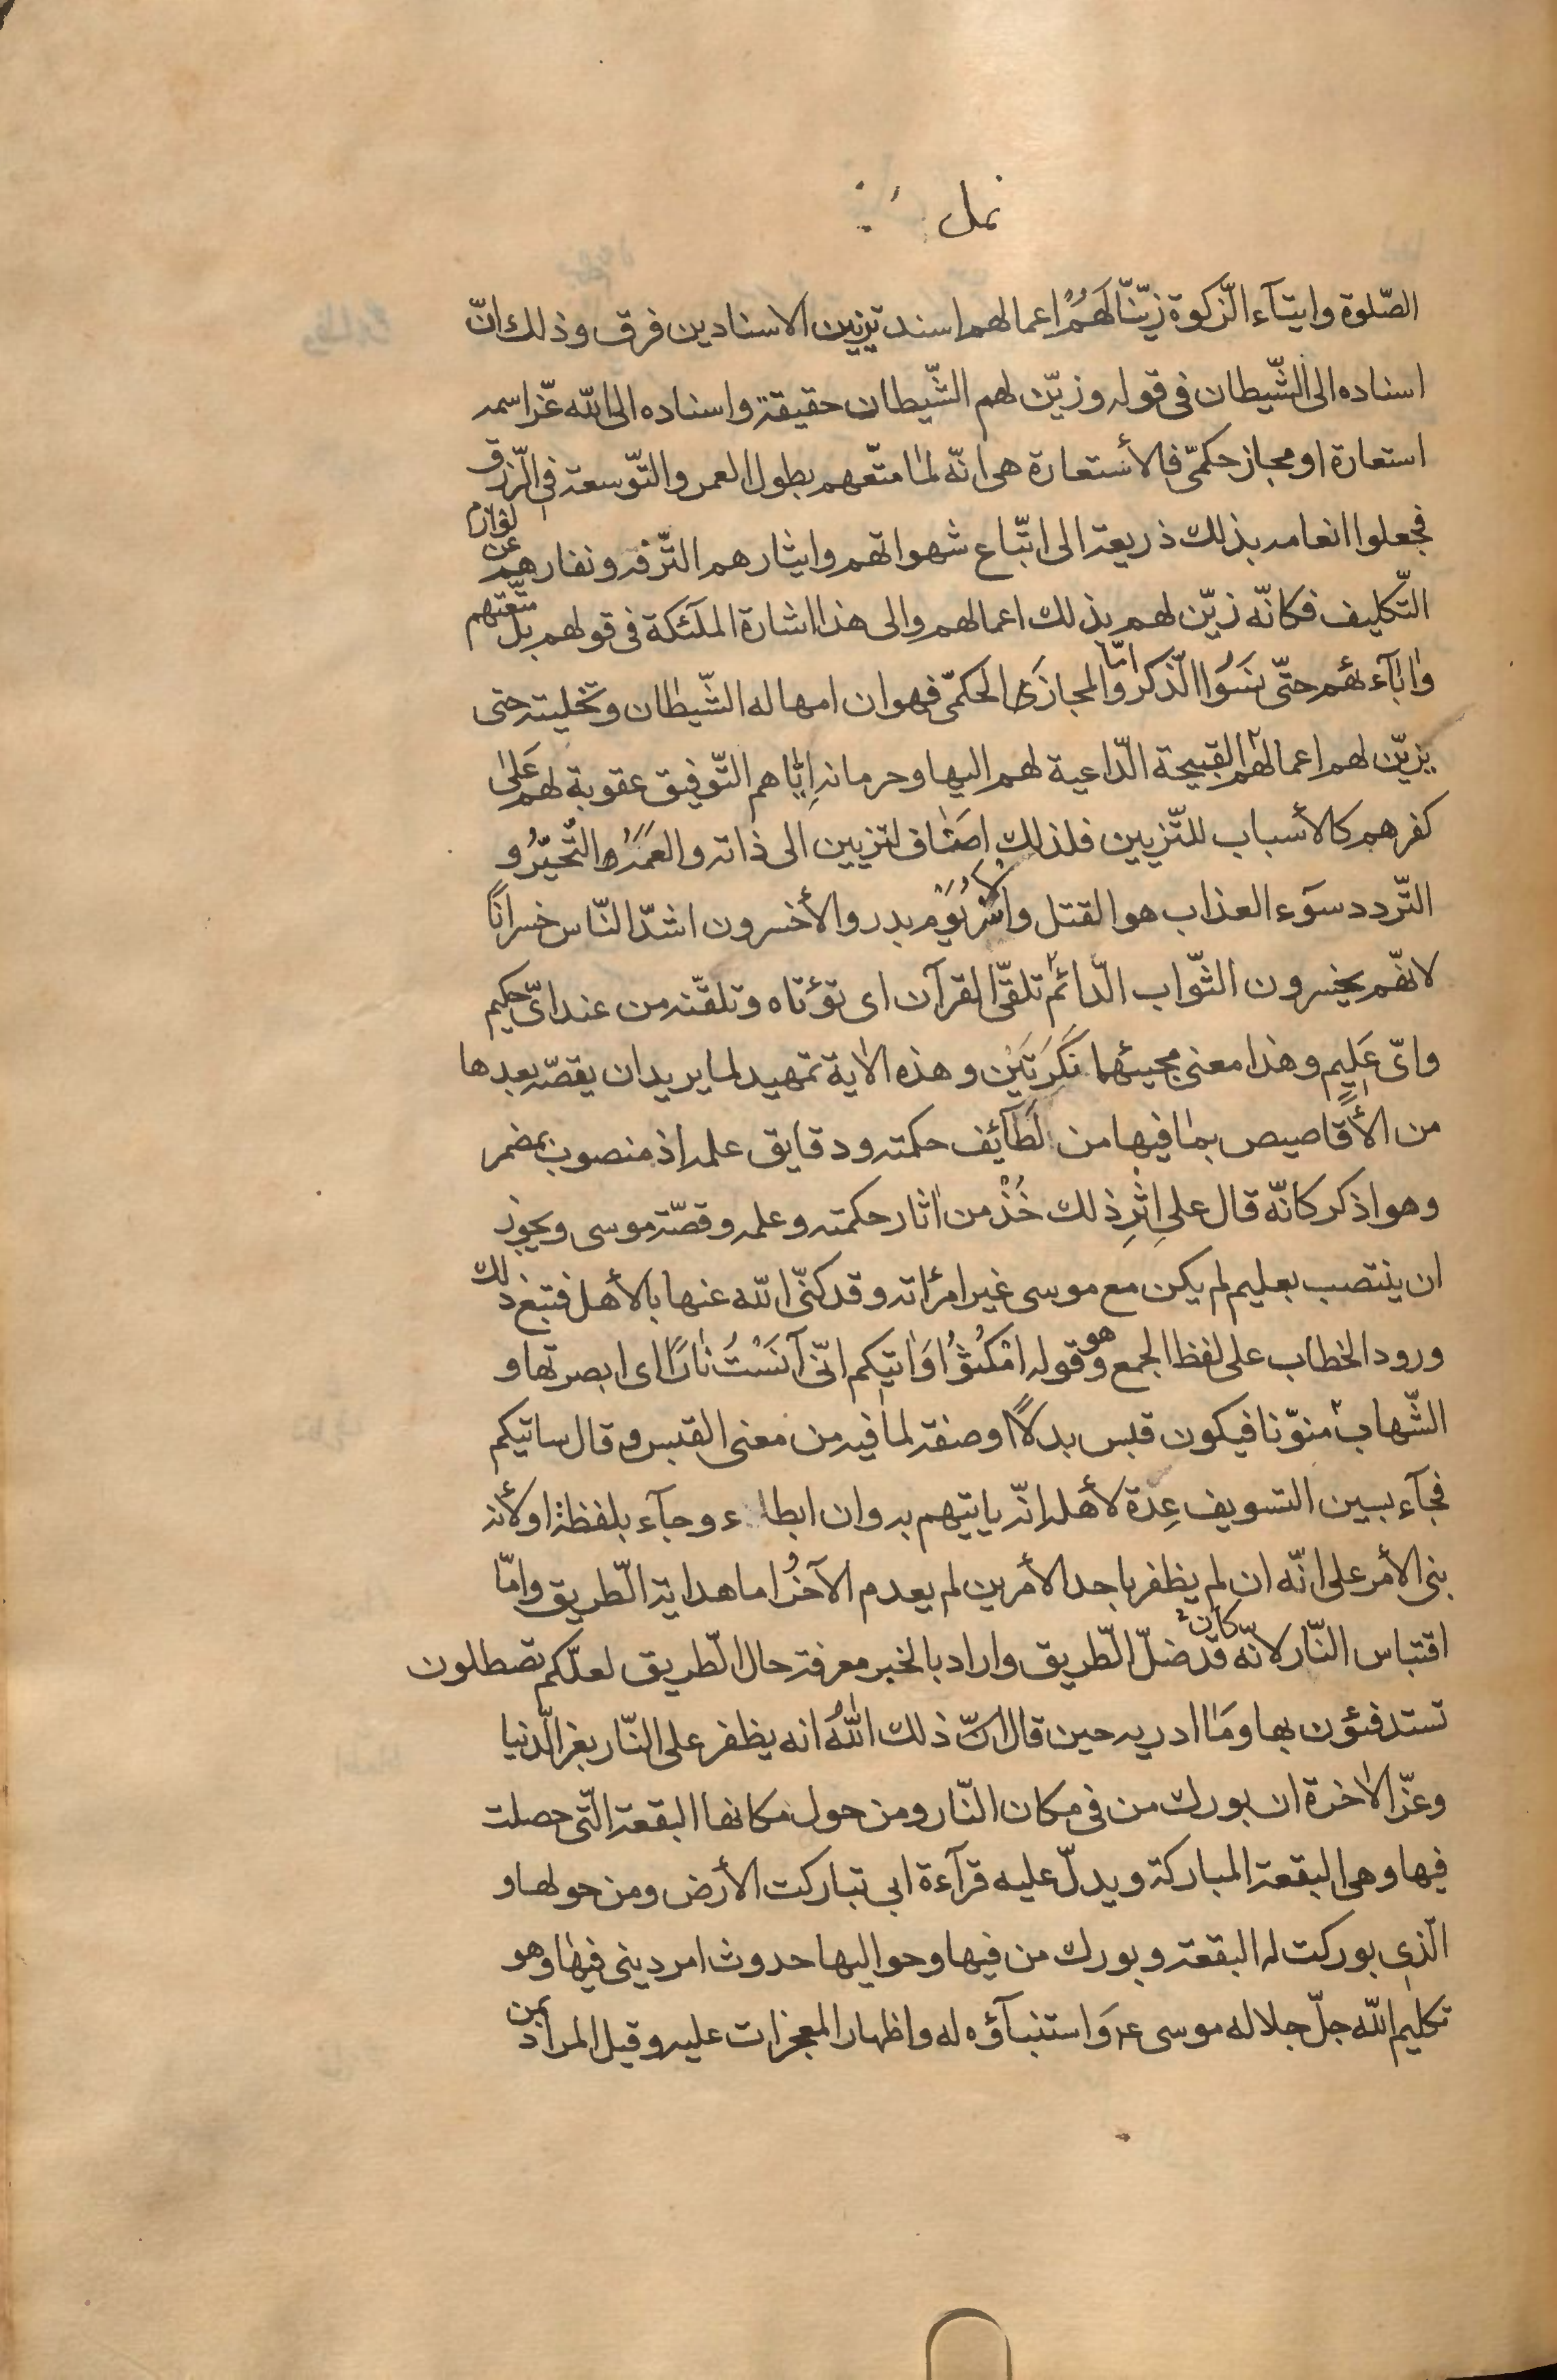 نمل
الصّلوة وايتآء الزّكوة زيّنّا لَهُمْ اعمالهم اسند تزيين الاسنادين فرق وذلك انّ
اسناده الى الشّيطان فى قوله وزيّن لهم الشّيطان حقيقة واسناده الى الله عزّ اسمه
استعارة او مجاز حكمىّ فالأستعارة هى انّه لما متّعهم بطول العمر والتّوسعة فى الرّزق
فجعلوا انعامه بذلك ذريعة الى اتّباع شهواتهم وايثارهم التّرفه ونفارهم عن لوازم
التّكليف فكانّه زيّن لهم بذلك اعمالهم والى هذا اشارة الملٰئكة فى قولهم بل متّعتهم
واٰبآءهم حتّى نسَوُا الذّكر وامّا المجاز الحكمىّ فهو ان امهاله الشّيطان وتخليته حتى
يزيّن لهم اعمالهم القبيحة الدّاعية لهم اليها وحرمانه اِيّاهم التّوفيق عقوبة لهم عَلىٰ
كفرهم كالأسباب للتّزيين فلذلك اضاف لتزيين الى ذاته والعمَهُ التّحيّرُ و
التّردد سوٓء العذاب هو القتل والأسْر يَوْم بدر والأخسرون اشدّ النّاس خسرانًا
لانّهم يخسرون الثّواب الدّائم تلقّى القرآن اى تؤتاه وتلقّنه من عند اىّ حكيم
واىّ عَلِيم وهذا معنى مجيئهما نَكِرَتَيْن وهذه الاٰية تمهيد لما يريد ان يقصّه بعدها
من الأقاصيص بما فيها من لَطآئِف حكمته ودقايق علمه اذ منصوب بمضمر
وهو اذكر كانّه قال على اِثْرِ ذلك خُذْ من اٰثار حكمته وعلمه وقصّة موسى ويجوز
ان ينتصب بعليم لم يكن مع موسى غير امرٔاته وقد كنّى الله عنها بالأهل فتبع ذلك
ورود الخطاب على لفظ الجمع وهو قوله امْكُثُوا وَاٰتيكم انّى آنَسْتُ نٰارًا اى ابصرتها و
الشّهاب منوّنا فيكون قبس بدلًا او صفة لما فيه من معنى القبس وقال ساتيكم
فجآء بسين التسويف عِدة لأهله انّه ياتيهم به وان ابطاء وجآء بلفظة او لأنه
بنى الأمر على انّه ان لم يظفر باحد الأمرين لم يعدم الآخرُ اما هداية الطّريق وامّا
اقتباس النّار لانّه كان قد ضلّ الطّريق واراد بالخبر معرفة حال الطّريق لعلّكم تصطلون
تستدفئون بها ومَا ادريه حين قال انّ ذلك اللهُ انه يظفر على النّار بعز الدّنيا
وعزّ الاٰخرة ان بورك من فى مكان النّار ومن حول مكانها البقعة الّتى حصلت
فيها وهى البقعة المباركة ويدلّ عليه قرآءة ابى تباركت الأرض ومن حولها و
الّذى بوركت له البقعة وبورك من فيها وحواليها حدوث امر دينى فيها وهو
تكليم الله جلّ جلاله موسى ع وَاستنبآؤه له واظهار المعجزات عليه وقيل المراد بمن